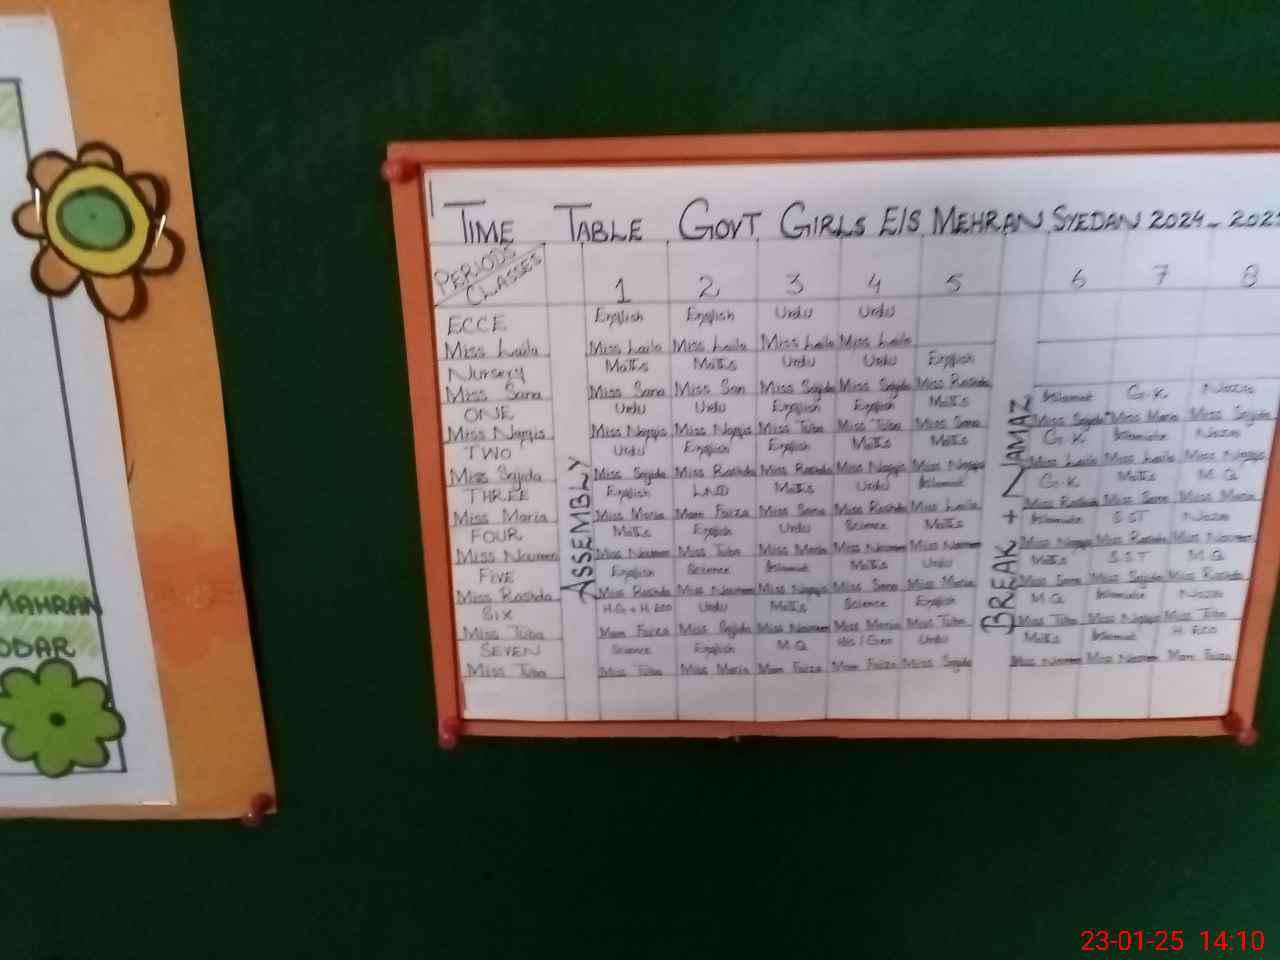 TIME TABLE GOVT GIRLS E/S MEHRAN SYEDAN 2024-202
PERIODS
CLASSES
1 2 3 4 5 6 7 8
ECCE English English Urdu Urdu
Miss Laila Miss Laila Miss Laila Miss Laila Miss Laila
Nursery Maths Maths Urdu Urdu English
Miss Sana Miss Sana Miss San Miss Sajida Miss Sajida Miss Rashda
ONE Urdu Urdu English English Maths Islamiat G.K Nazra
Miss Nargis Miss Nargis Miss Nargis Miss Tuba Miss Tuba Miss Sana Miss Sajida Miss Maria Miss Sajida
TWO Urdu English English Maths Maths G.K Islamiat Nazra
Miss Sajida Miss Sajida Miss Rashda Miss Rashda Miss Nargis Miss Nargis Miss Laila Miss Laila Miss Nargis
THREE English LND Maths Urdu Islamiat G.K Maths M.Q
Miss Maria Miss Maria Mam Faiza Miss Sana Miss Rashda Miss Laila Miss Rashda Miss Sana Miss Maria
FOUR Maths English Urdu Science Maths Islamiat S.ST Nazra
Miss Noureen Miss Noureen Miss Tuba Miss Maria Miss Noureen Miss Noureen Miss Nargis Miss Rashda Miss Noureen
FIVE English Science Islamiat Maths Urdu Maths S.S.T M.Q
Miss Rashda Miss Rashda Miss Noureen Miss Nargis Miss Sana Miss Maria Miss Sana Miss Sajida Miss Rashda
SIX Urdu Maths Science English M.Q Islamiat Nazra
Miss Tuba Mam Faiza Miss Sajida Miss Noureen Miss Maria Miss Tuba Miss Tuba Miss Nargis Miss Tuba
SEVEN Science English M.Q His/Geo Urdu Maths Islamiat H.Eco
Miss Tuba Miss Tuba Miss Maria Mam Faiza Mam Faiza Miss Sajida Miss Noureen Miss Noureen Mam Faiza
ASSEMBLY
BREAK + NAMAZ
MAHRAN
ODDAR
23-01-25 14:10